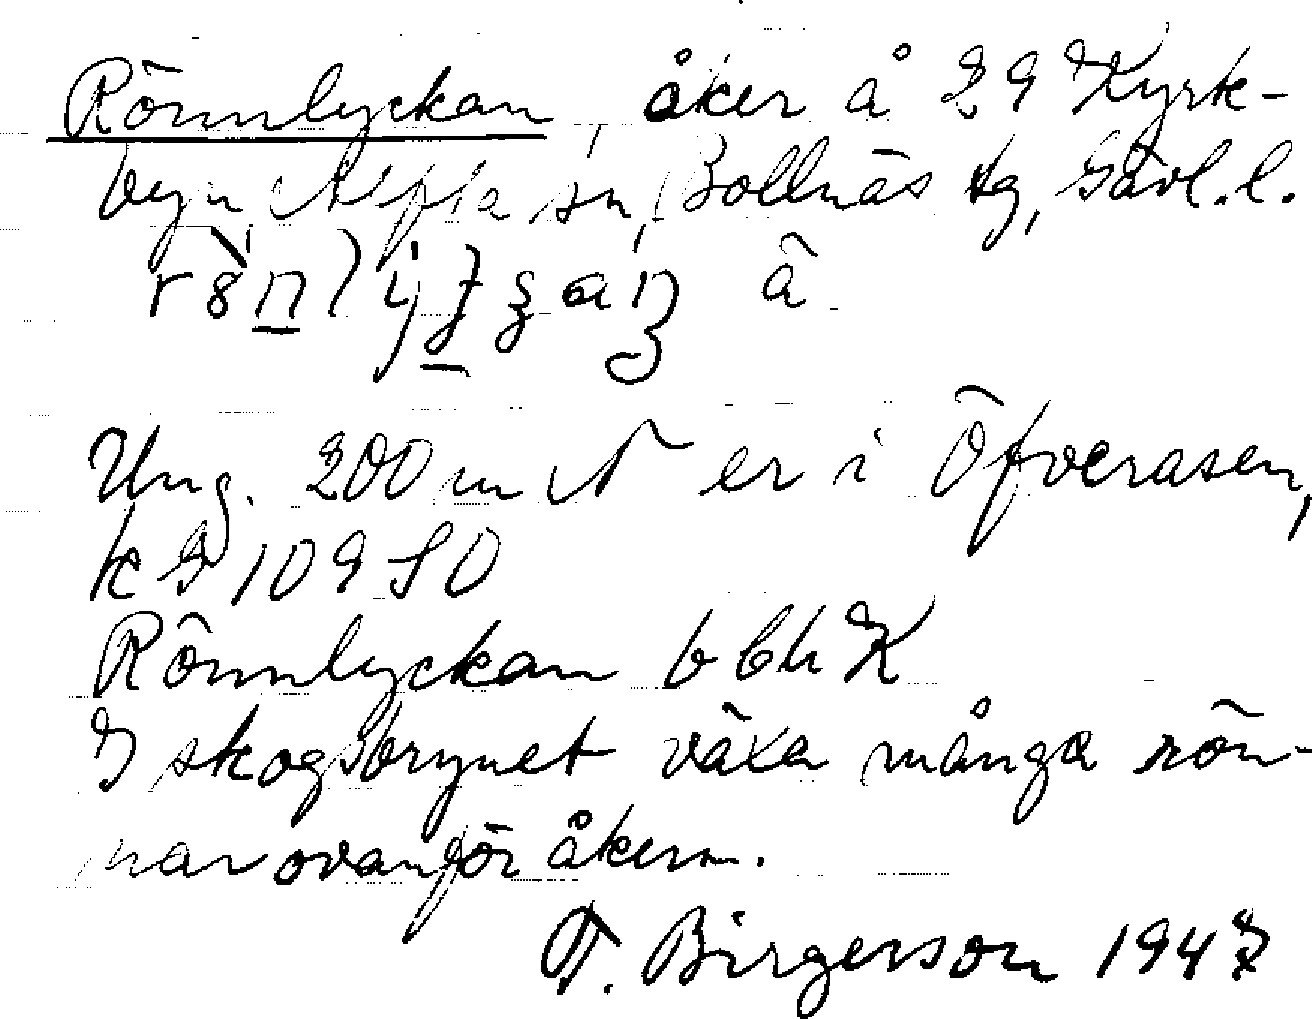 Rönnlyckan, åker å 29 Kyrk-
byn Alfta sn, Bollnäs tg, Gävl.l.
Ung. 200 m N er i Öfveråsen,
10 9 SO
Rönnlyckan
I skogsbrynet växa många rön-
nar ovanför åkern.
T. Birgerson 1947